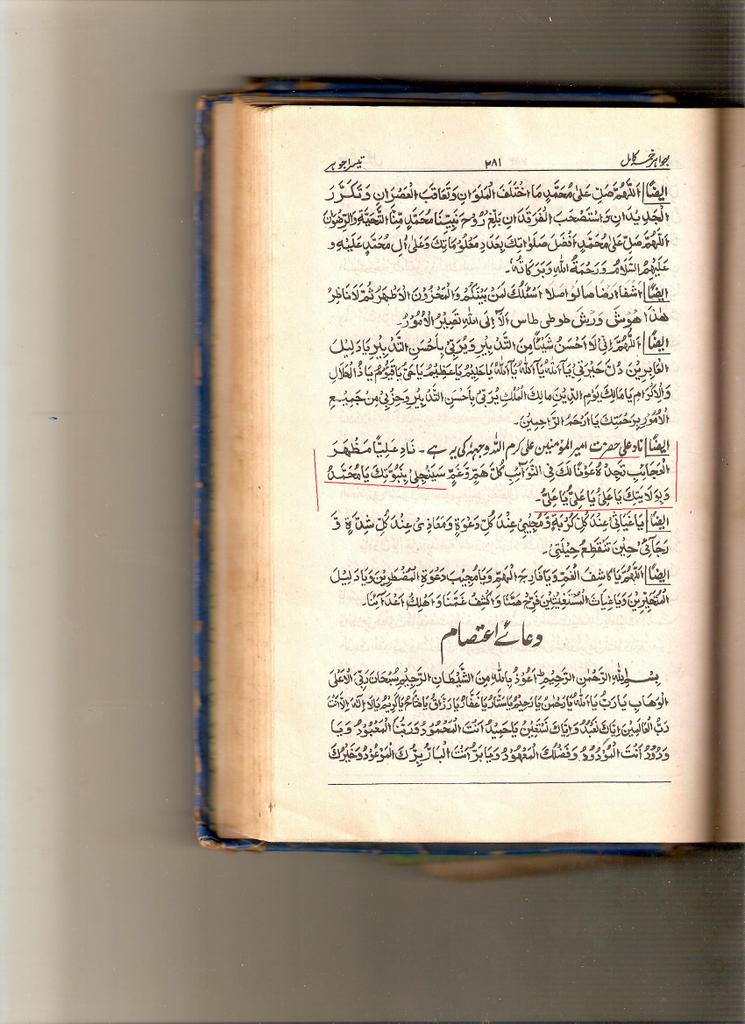 جواہر خمسہ کامل ۲۸۱ تیسرا جوہر
ایضًا اَللّٰهُمَّ صَلِّ عَلٰی مُحَمَّدٍ مَا اخْتَلَفَ الْمَلَوَانِ وَتَعَاقَبَ الْعَصْرَانِ وَتَكَرَّرَ
الْجَدِيْدَانِ وَاسْتَصْحَبَ الْفَرْقَدَانِ بَلِّغْ رُوْحَ نَبِيِّنَا مُحَمَّدٍ مِّنَّا التَّحِيَّةَ وَالرِّضْوَانَ
اَللّٰهُمَّ صَلِّ عَلٰی مُحَمَّدٍ اَفْضَلَ صَلَوَاتِكَ بِعَدَدِ مَعْلُوْمَاتِكَ وَعَلٰی اٰلِ مُحَمَّدٍ عَلَيْهِ وَ
عَلَيْهِمُ السَّلَامُ وَرَحْمَةُ اللّٰهِ وَبَرَكَاتُهٗ۔
ایضًا اَسْئَلُكَ لَمَنْ بَيْنَكُمْ وَالْمَخْزُوْنِ الْاَطْهَرِ ثُمَّ لَا نَاظِرُ
هٰذَا طوطی طاس اَلَآ اِلَی اللّٰهِ تَصِيْرُ الْاُمُوْرُ۔
ایضًا اَللّٰهُمَّ اِنِّیْ لَا اَحْسَنُ شَيْئًا مِنَ التَّدْبِيْرِ وَيُرَبِّیْ بِاَحْسَنِ التَّدْبِيْرِ يَا دَلِيْلَ
يَآ اَللّٰهُ يَآ اَللّٰهُ يَآ اَللّٰهُ يَا حَلِيْمُ يَا عَظِيْمُ يَا حَیُّ يَا قَيُّوْمُ يَا ذَا الْجَلَالِ
وَالْاِكْرَامِ يَا مَالِكَ يَوْمِ الدِّيْنِ مَالِكَ الْمُلْكِ يُرَبِّیْ بِاَحْسَنِ التَّدْبِيْرِ مِنْ جَمِيْعِ
الْاُمُوْرِ بِرَحْمَتِكَ يَا اَرْحَمَ الرَّاحِمِيْنَ۔
ایضًا ناد علی حضرت امیر المؤمنین علی کرم اللہ وجہہٗ کی یہ ہے۔ نَادِ عَلِيًّا مَظْهَرَ
الْعَجَائِبِ تَجِدْهُ عَوْنًا لَكَ فِی النَّوَآئِبِ كُلُّ هَمٍّ وَغَمٍّ سَيَنْجَلِیْ بِنُبُوَّتِكَ يَا مُحَمَّدُ
وَبِوَلَايَتِكَ يَا عَلِیُّ يَا عَلِیُّ يَا عَلِیُّ۔
ایضًا يَا غِيَاثِیْ عِنْدَ كُلِّ كُرْبَةٍ وَمُجِيْبِیْ عِنْدَ كُلِّ دَعْوَةٍ وَمَعَاذِیْ عِنْدَ كُلِّ شِدَّةٍ وَّ
رَجَآئِیْ حِيْنَ تَنْقَطِعُ حِيْلَتِیْ۔
ایضًا اَللّٰهُمَّ يَا كَاشِفَ الْغَمِّ وَيَا فَارِجَ الْهَمِّ وَيَا مُجِيْبَ دَعْوَةِ الْمُضْطَرِّيْنَ وَيَا دَلِيْلَ
الْمُتَحَيِّرِيْنَ وَيَا غِيَاثَ الْمُسْتَغِيْثِيْنَ فَرِّجْ هَمَّنَا وَاكْشِفْ غَمَّنَا وَاَهْلِكْ اَعْدَآئَنَا۔
دعائے اعتصام
بِسْمِ اللّٰهِ الرَّحْمٰنِ الرَّحِيْمِ اَعُوْذُ بِاللّٰهِ مِنَ الشَّيْطَانِ الرَّجِيْمِ سُبْحَانَ رَبِّیَ الْاَعْلٰی
الْوَهَّابِ يَا رَبِّ يَا اَللّٰهُ يَا رَحْمٰنُ يَا رَحِيْمُ يَا سَتَّارُ يَا غَفَّارُ يَا رَزَّاقُ يَا فَتَّاحُ يَا كَرِيْمُ يَا لَا اِلٰهَ اِلَّا اَنْتَ
رَبُّ الْعَالَمِيْنَ اِيَّاكَ نَعْبُدُ وَاِيَّاكَ نَسْتَعِيْنُ يَا حَمِيْدُ اَنْتَ الْمَحْمُوْدُ وَرَبُّنَا الْمَعْبُوْدُ وَيَا
وَدُوْدُ اَنْتَ الْمَوْدُوْدُ وَفَضْلُكَ الْمَعْهُوْدُ وَيَا بَرُّ اَنْتَ الْبَارُّ بِرُّكَ الْمَوْعُوْدُ وَخَيْرُكَ